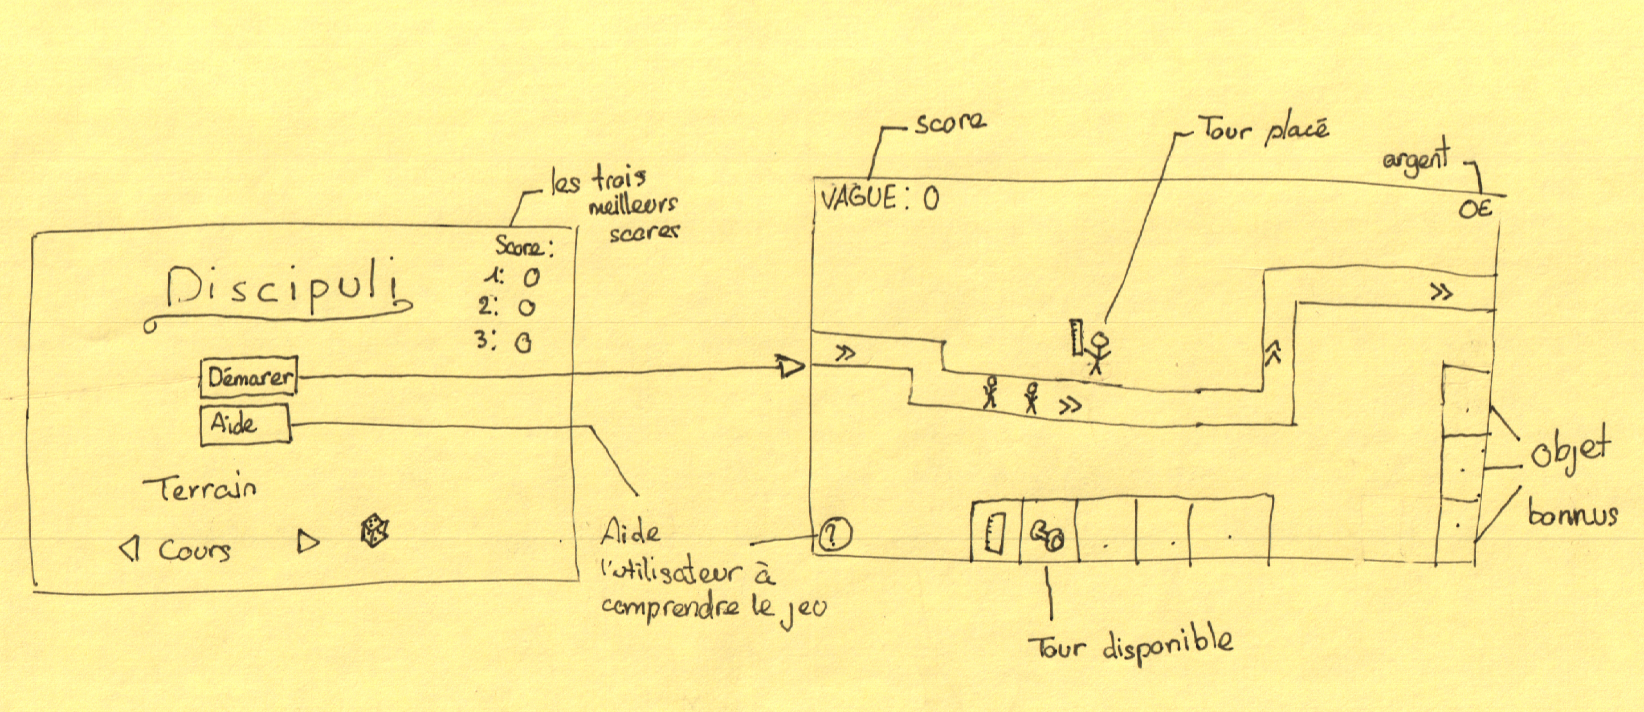 les trois
meilleurs
scores
Score:
1: 0
2: 0
3: 0
Discipuli
Démarer
Aide
Terrain
Cours
Aide
l'utilisateur à
comprendre le jeu
score
Tour placé
argent
VAGUE: 0
0€
?
objet
bonnus
Tour disponible